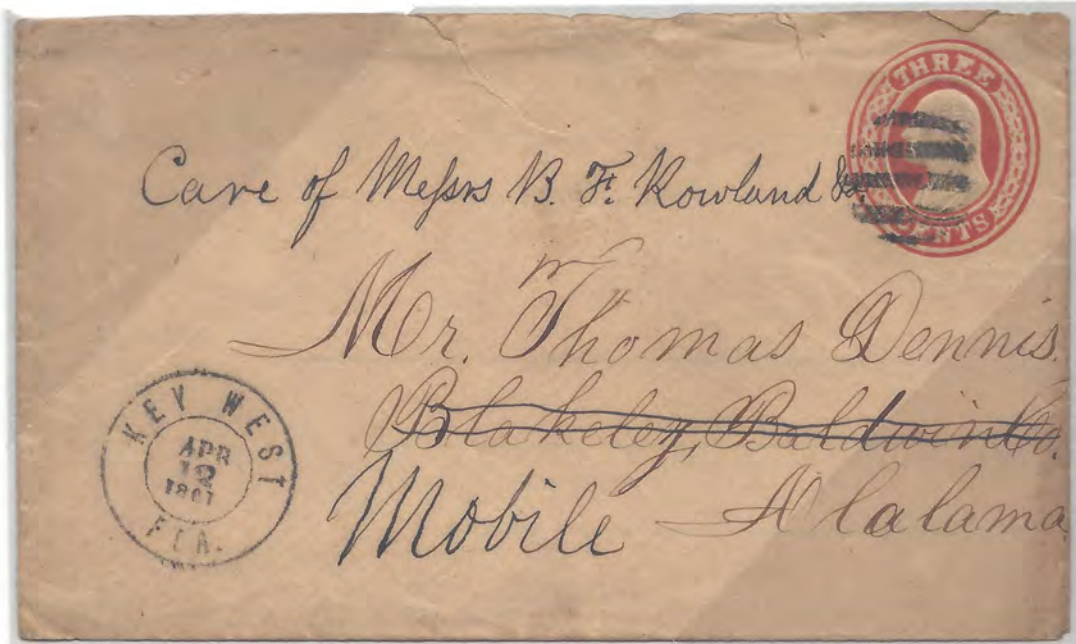 THREE
CENTS
Care of Messrs B. F. Rowland &
Mr. Thomas Dennis.
Blakeley, Baldwin Co.
Mobile Alalama
KEY WEST
APR
12
1861
FLA.